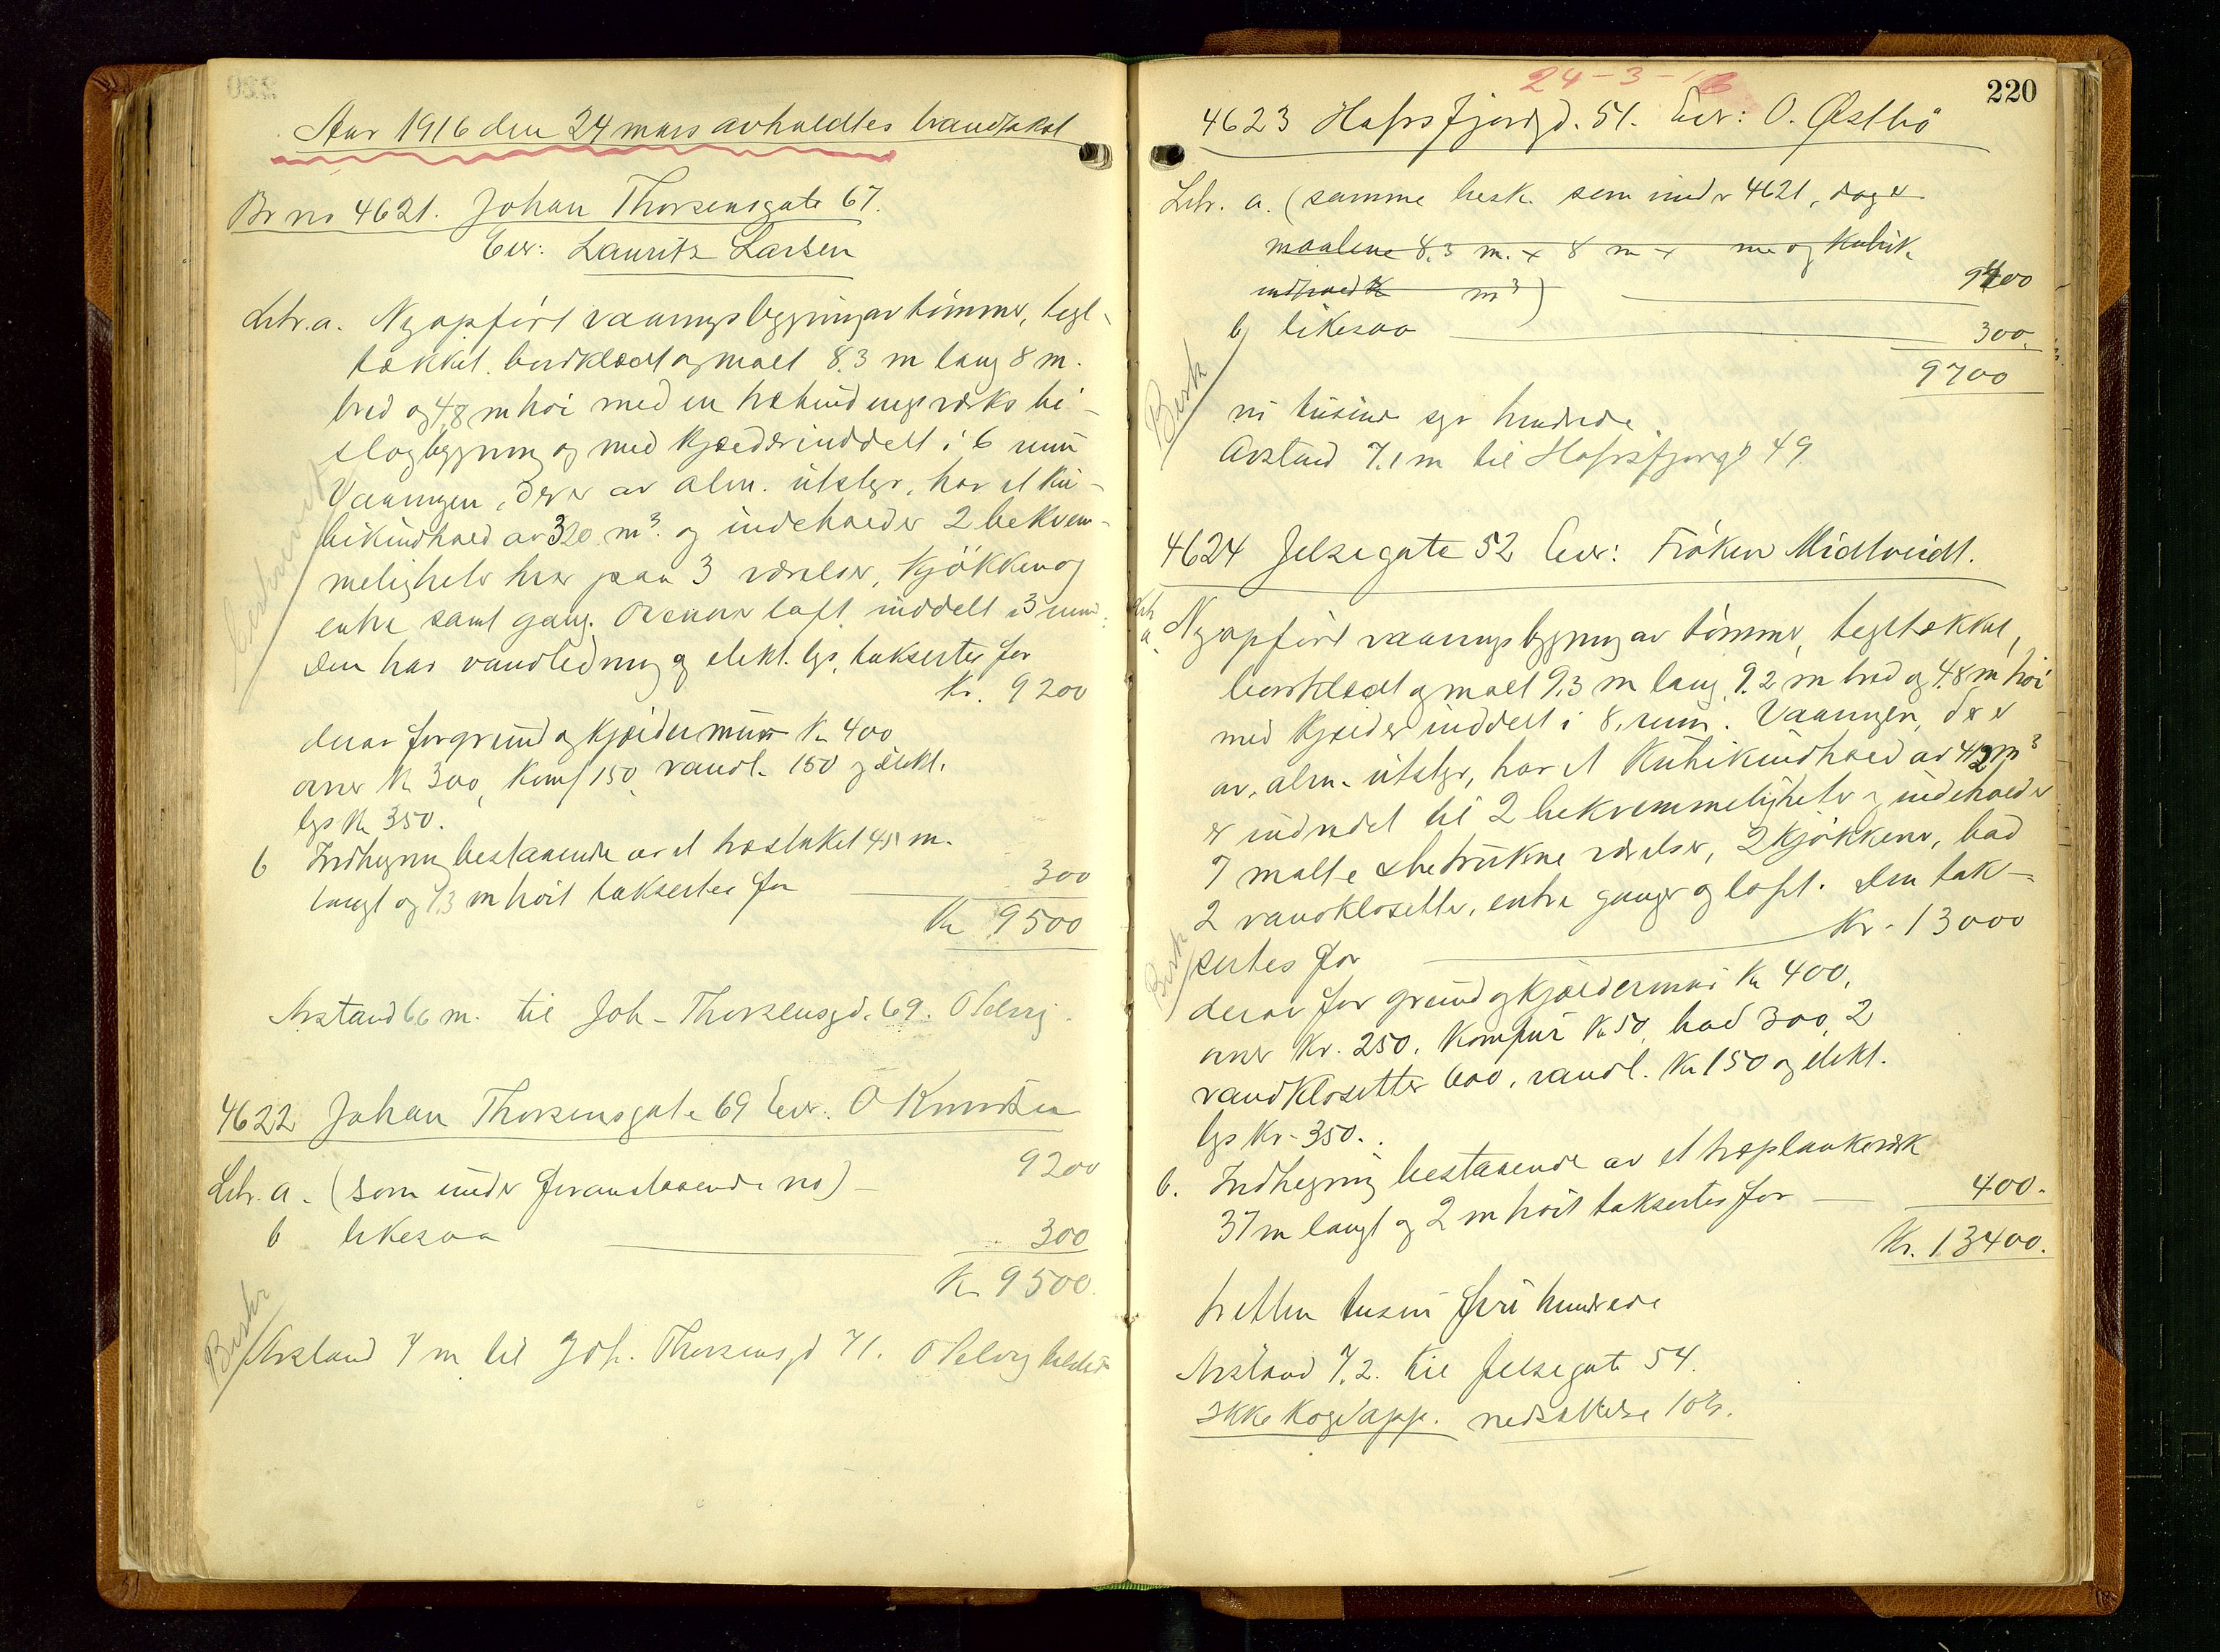 Aar 1916 den 24 mars avholdtes brandtakst
Br no 4621. Johan Thorsensgate 67.
Eier: Lauritz Larsen
Litr. a. Nyopført vaaningsbygning av tømmer, tegl-
tækket. bordklædt og malt 8.3 m lang 8 m.
bred og 4,8 m høi med en træbindingsverks bi-
slagbygning og med kjælder inddelt i 6 rum
Vaaningen, der er av alm. utstyr, har et ku-
bikindhold av 320 m³. og indeholder 2 bekvem-
meligheter hver paa 3 værelser, kjøkken og
entre samt gang. Ovenover loft inddelt i 3 rum.
Den har vandledning og elekt. lys, taksertes for
Kr. 9200
derav for grund og kjældermur Kr 400
ovner Kr 300, komf 150, vandl. 150 og elekt.
lys Kr 350.
b Indhegning bestaaende av et træstaket 45 m.
langt og 1,3 m høit taksertes for 300
Kr 9500
Avstand 6,6 m. til Joh. Thorsensgd. 69.
4622 Johan Thorsensgate 69 Eier: O Knudsen
Litr. a. (som under foranstaaende no) - 9200
b likesaa 300
Kr 9500.
Beskr
Avstand 7 m til Joh. Thorsensgd 71.
220
24-3-16
4623 Hafrsfjordgd. 51. Eier: O. Østbø
Litr. a. (samme besk. som under 4621, dog er
maalene 8.3 m. x 8 m x me og kubik
indhold m³) 9400
b likesaa 300.
9700
Besk
ni tusinde syv hundrede
Avstand 7.1 m til Hafrsfjordgd 49
4624 Jelsegate 52 Eier: Frøken Midtveidt.
Litr
a. Nyopført vaaningsbygning av tømmer, tegltækket,
bordklædt og malt 9,3 m lang, 9.2 m bred og 4,8 m høi
med kjælder inddelt i 8 rum. Vaaningen, der er
av alm. utstyr, har et kubikindhold av 412 m³
er indredet til 2 bekvemmeligheter og indeholder
7 malte & betrukne værelser, 2 kjøkkener, bad
2 vandklosetter, entre ganger og loft. Den tak-
sertes for Kr. 13000
Besk
derav for grund og kjældermur Kr 400,
ovner Kr. 250. Komfur Kr 50, bad 300, 2
vandklosetter 600, vandl. Kr 150 og elekt.
lys Kr. 350.
b. Indhegning bestaaende av et træplankeverk
37 m langt og 2 m høit taksertes for 400.
Kr. 13400.
tretten tusin fire hundrede
Avstand 7.2. til Jelsegate 54.
Ikke kogeapp. nedsættelse 10%.